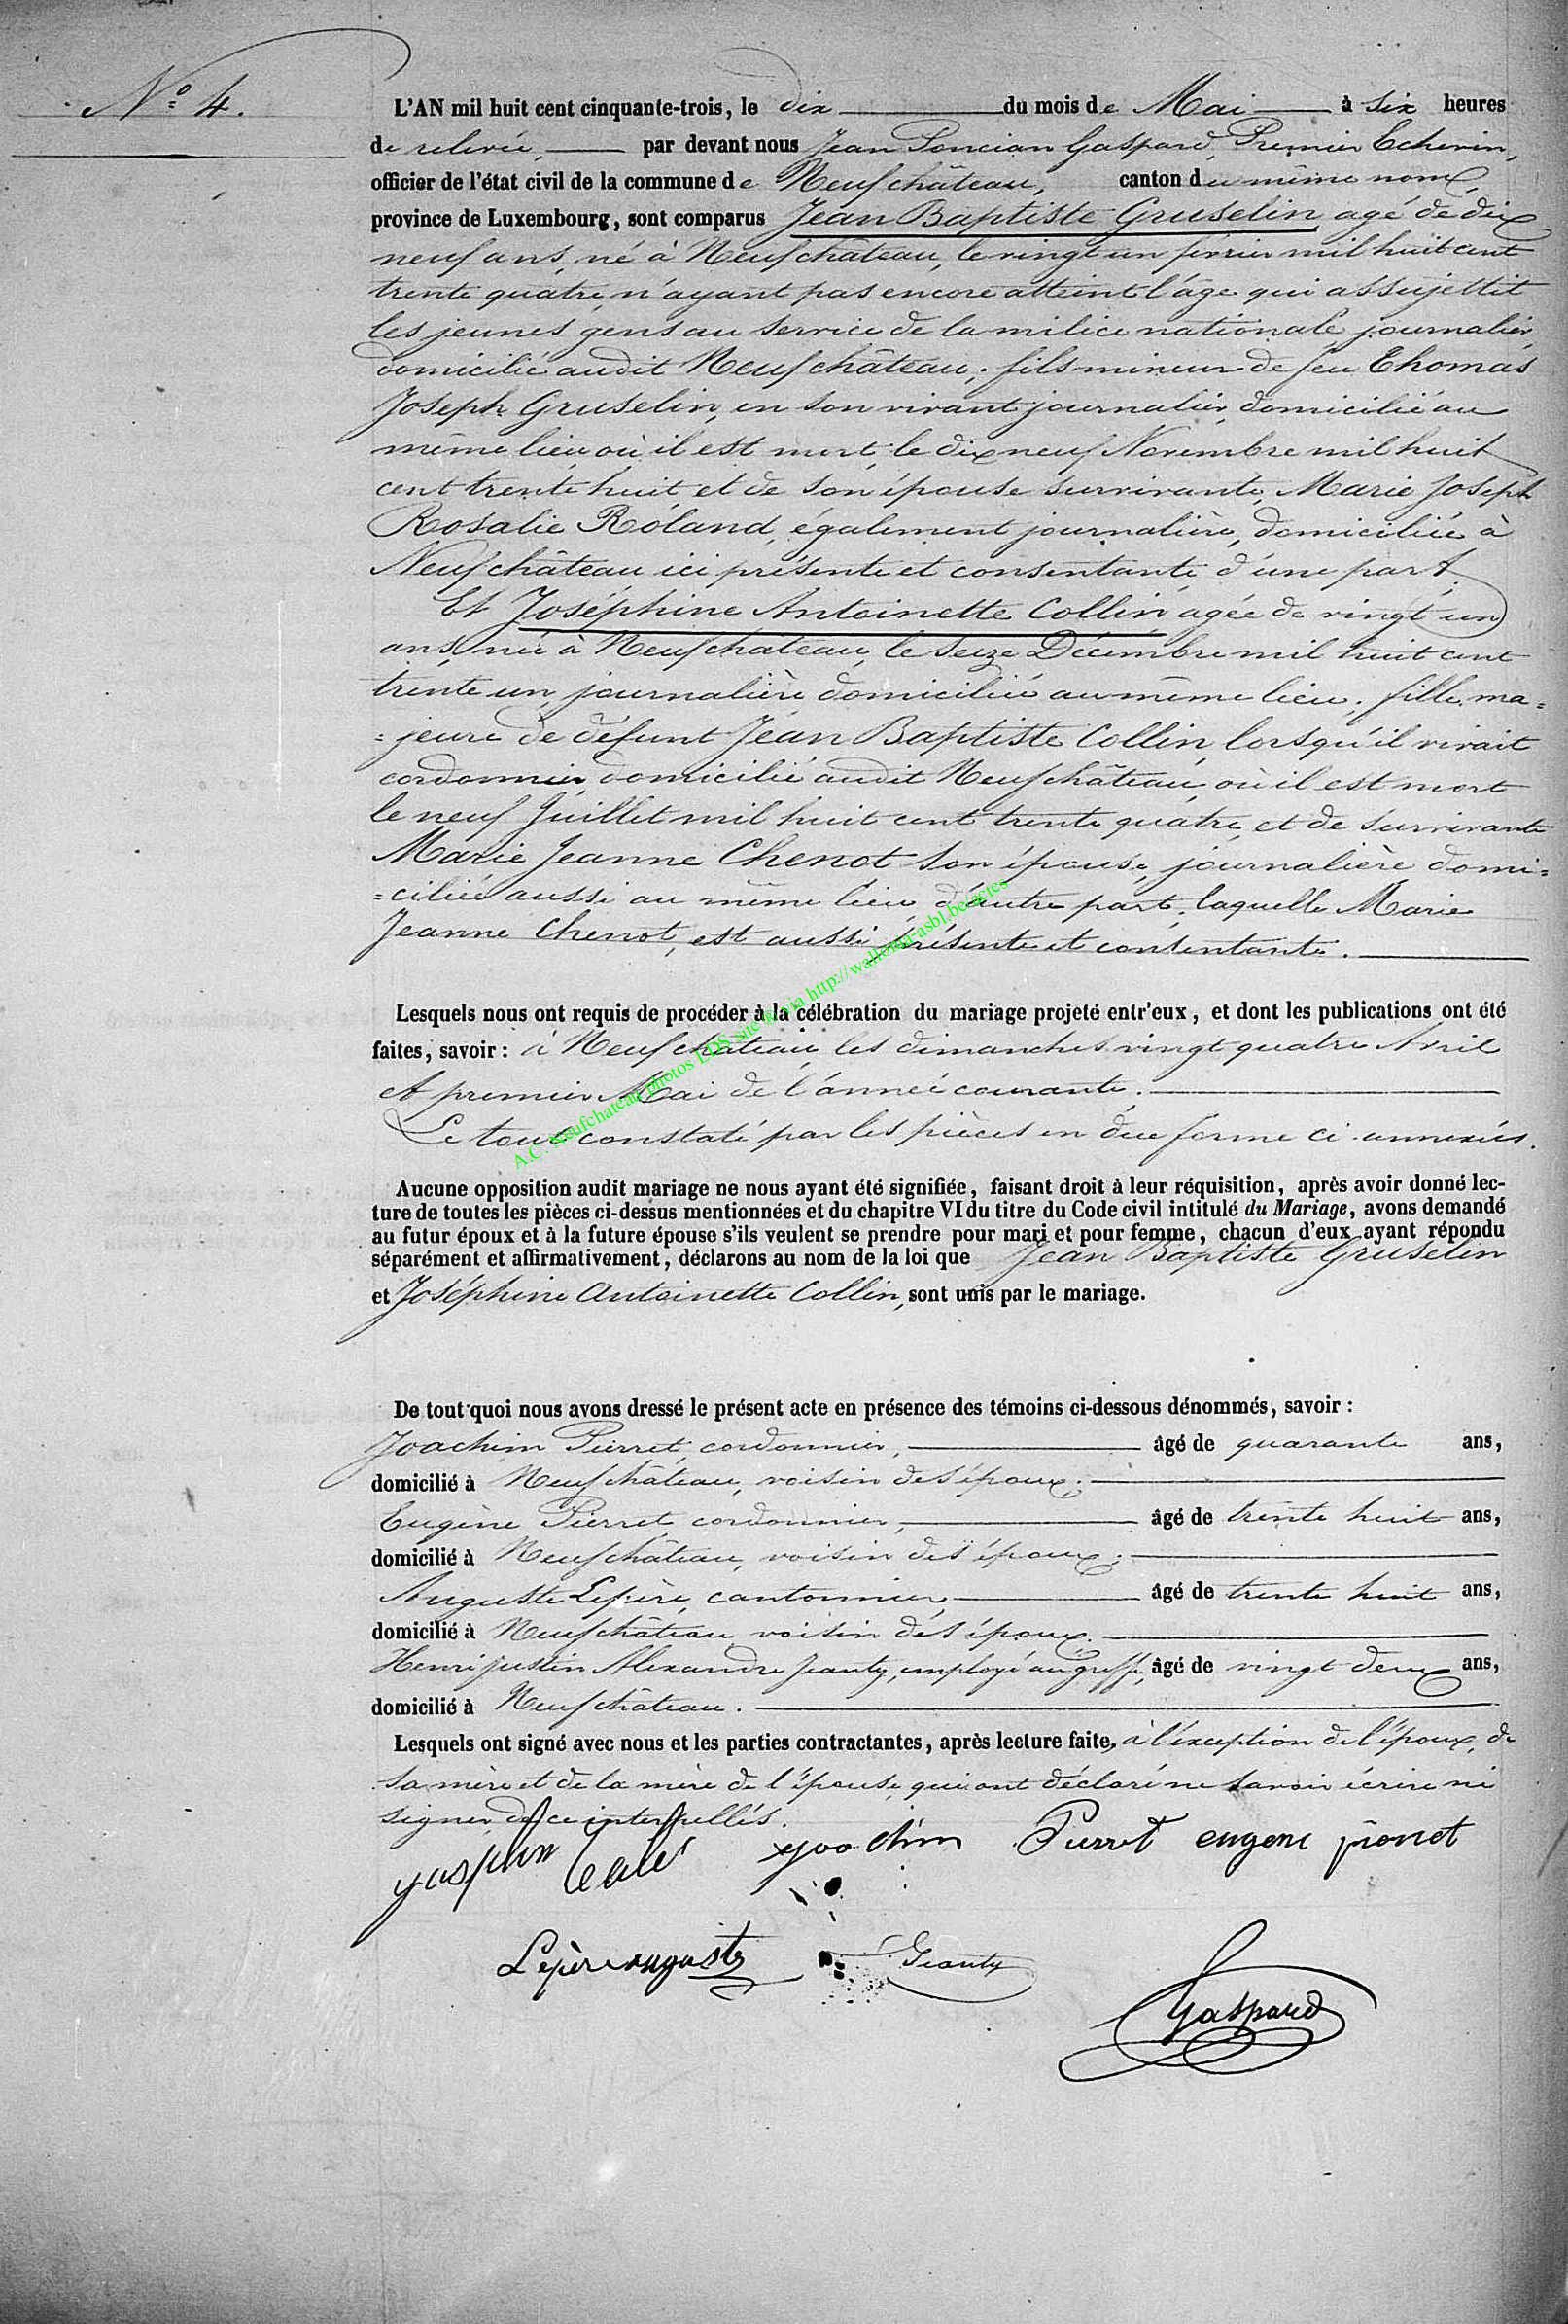 N° 4.
L'AN mil huit cent cinquante-trois, le dix du mois de Mai à six heures
de relevée, par devant nous Jean Poncian Gaspard, Premier Echevin,
officier de l'état civil de la commune de Neufchâteau, canton du même nom,
province de Luxembourg, sont comparus Jean Baptiste Gruselin agé de dix
neuf ans, né à Neufchâteau, le vingt un février mil huit cent
trente quatre, n'ayant pas encore atteint l'âge qui assujettit
les jeunes gens au service de la milice nationale, journalier,
domicilié audit Neufchâteau; fils mineur de feu Thomas
Joseph Gruselin, en son vivant journalier, domicilié au
même lieu où il est mort, le dix neuf Novembre mil huit
cent trente huit et de son épouse survivante, Marie Joseph
Rosalie Roland, également journalière, domiciliée à
Neufchâteau ici présente et consentante d'une part,
Et Joséphine Antoinette Collin agée de vingt un
ans, née à Neufchâteau, le seize Décembre mil huit cent
trente un, journalière domiciliée au même lieu; fille ma=
=jeure de défunt Jean Baptiste Collin, lorsqu'il vivait
cordonnier, domicilié audit Neufchâteau, où il est mort
le neuf Juillet mil huit cent trente quatre, et de survivante
Marie Jeanne Chenot son épouse, journalière domi=
=ciliée aussi au même lieu, d'autre part, laquelle Marie
Jeanne Chenot, est aussi présente et consentante.
Lesquels nous ont requis de procéder à la célébration du mariage projeté entr'eux, et dont les publications ont été
faites, savoir: à Neufchâteau, les dimanches vingt quatre Avril
et premier Mai de l'année courante.
Le tout constaté par les pièces en due forme ci-annexées.
A.C. Neufchateau photos LDS site via http://wallonia-asbl.be/actes
Aucune opposition audit mariage ne nous ayant été signifiée, faisant droit à leur réquisition, après avoir donné lec-
ture de toutes les pièces ci-dessus mentionnées et du chapitre VI du titre du Code civil intitulé du Mariage, avons demandé
au futur époux et à la future épouse s'ils veulent se prendre pour mari et pour femme, chacun d'eux ayant répondu
séparément et affirmativement, déclarons au nom de la loi que Jean Baptiste Gruselin
et Joséphine Antoinette Collin, sont unis par le mariage.
De tout quoi nous avons dressé le présent acte en présence des témoins ci-dessous dénommés, savoir:
Joachim Pierret, cordonnier, âgé de quarante ans,
domicilié à Neufchâteau, voisin des époux;
Eugène Pierret, cordonnier, âgé de trente huit ans,
domicilié à Neufchâteau, voisin des époux;
Auguste Lepère, cantonnier, âgé de trente huit ans,
domicilié à Neufchâteau voisin des époux.
Henri Justin Alexandre Jeanty, employé au greffe, âgé de vingt deux ans,
domicilié à Neufchâteau.
Lesquels ont signé avec nous et les parties contractantes, après lecture faite, à l'exception de l'époux, de
sa mère et de la mère de l'épouse, qui ont déclaré ne savoir écrire ni
signer, de ce interpellés.
Pierret eugene pierret
Lepère auguste Jeanty
Gaspard